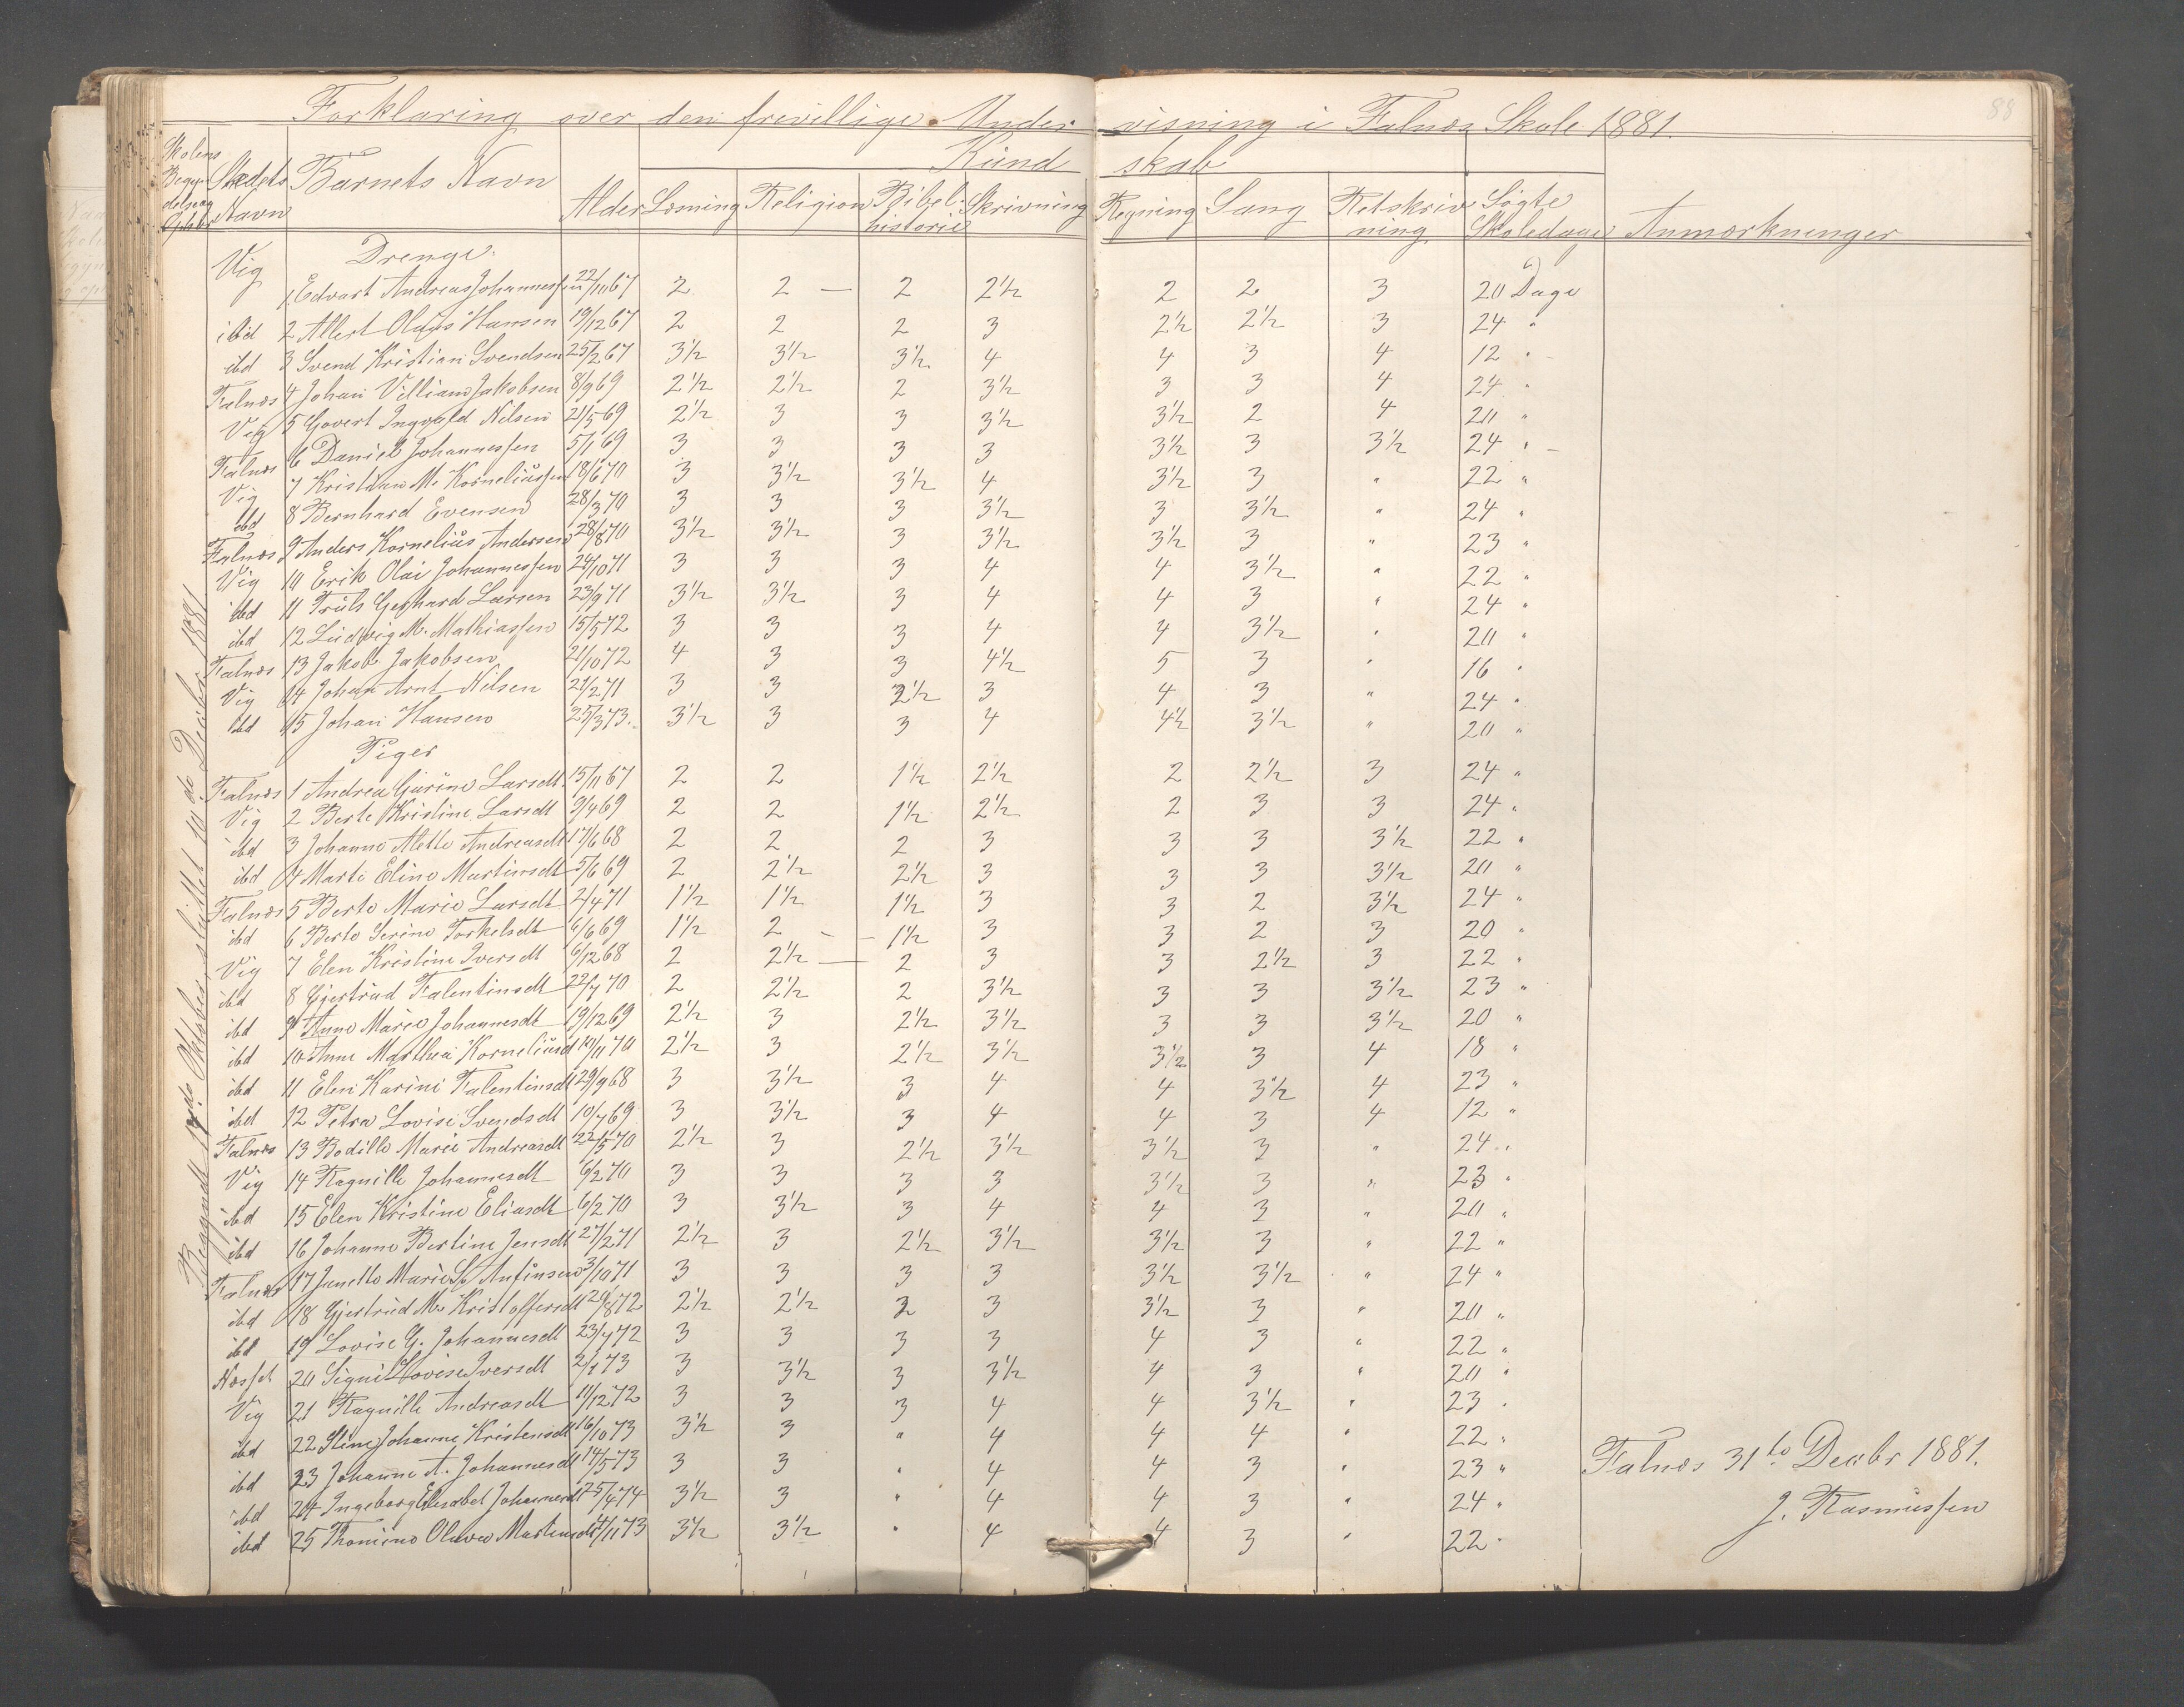 88
Forklaring over den frivillige Undervisning i Falnæs Skole 1881.
Skolens Begyndelse og Ophør | Stedets Navn | Barnets Navn | Alder | Kundskab | Søgte Skoledage | Anmærkninger
Læsning | Religion | Bibelhistorie | Skrivning | Regning | Sang | Retskrivning
Drenge.
Vig 1 Edvart Andreas Johannessen 22/10 67 2 2 – 2 2½ 2 2 3 20 Dage
ibid 2 Allert Olaus Hansen 19/12 67 2 2 2 3 2½ 2½ 3 24 "
ibd 3 Svend Kristian Svendsen 25/2 67 3½ 3½ 3½ 4 4 3 4 12 "
Falnæs 4 Johan Villiam Jakobsen 8/9 69 2½ 2½ 2 3½ 3 3 4 24 "
Vig 5 Govert Ingvald Nilsen 21/5 69 2½ 3 3 3½ 3½ 2 4 20 "
Falnæs 6 Daniel Johannessen 5/1 69 3 3 3 3 3½ 3 3½ 24 "
Vig 7 Kristian M. Korneliussen 18/6 70 3 3½ 3½ 4 3½ 3 " 22 "
ibd 8 Bernhard Evensen 28/3 70 3 3 3 3½ 3 3½ " 24 "
Falnæs 9 Anders Kornelius Andersen 28/8 70 3½ 3½ 3 3½ 3½ 3 " 23 "
Vig 10 Erik Olai Johannessen 24/10 71 3 3 3 4 4 3½ " 22 "
ibd 11 Truls Gerhard Larsen 23/9 71 3½ 3½ 3 4 4 3 " 24 "
ibd 12 Ludvig M. Mathiassen 15/5 72 3 3 3 4 4 3½ " 20 "
Falnæs 13 Jakob Jakobsen 21/10 72 4 3 3 4½ 5 3 " 16 "
Vig 14 Johan Arnt Nilsen 21/2 71 3 3 2½ 3 4 3 " 24 "
ibd 15 Johan Hansen 25/3 73. 3½ 3 3 4 4½ 3½ " 20 "
Piger
Falnæs 1 Andrea Gurine Larsdt 15/11 67 2 2 1½ 2½ 2 2½ 3 24 "
Vig 2 Berte Kristine Larsdt 9/4 69 2 2 1½ 2½ 2 3 3 24 "
ibd 3 Johanne Alette Andreasdt 17/6 68 2 2 2 3 3 3 3½ 22 "
ibd 4 Marte Eline Martinsdt 5/6 69 2 2½ 2½ 3 3 3 3½ 20 "
Falnæs 5 Berte Marie Larsdt 2/4 71 1½ 1½ 1½ 3 3 2 3½ 24 "
ibd 6 Berte Serine Torkelsdt 6/6 69 1½ 2 – 1½ 3 3 2 3 20 "
Vig 7 Elen Kristine Iversdt 6/12 68 2 2½ – 2 3 3 2½ 3 22 "
ibd 8 Gjertrud Falentinsdt 22/7 70 2 2½ 2 3½ 3 3 3½ 23 "
ibd 9 Anne Marie Johannesdt 19/12 69 2½ 3 2½ 3½ 3 3 3½ 20 "
ibd 10 Anne Marthea Korneliusd 10/11 70 2½ 3 2½ 3½ 3½ 3 4 18 "
ibd 11 Elen Karine Falentinsdt 29/9 68 3 3½ 3 4 4 3½ 4 23 "
ibd 12 Petra Lovise Svendsdt 10/7 69 3 3½ 3 4 4 3 4 12 "
Falnæs 13 Bodille Marie Andreasdt 22/5 70 2½ 3 2½ 3½ 3½ 3 " 24 "
Vig 14 Ragnille Johannesdt 6/2 70 3 3 3 3 3½ 3 " 23 "
ibd 15 Elen Kristine Eliasdt 6/2 70 3 3½ 3 4 4 3 " 20 "
ibd 16 Johanne Bertine Jensdt 27/2 71 2½ 3 2½ 3½ 3½ 3 " 22 "
Falnæs 17 Janette Marie S. Anfinsen 3/10 71 3 3 3 3 3½ 3½ " 24 "
ibd 18 Gjertrud M. Kristoffersdt 20/8 72 2½ 2½ 2 3 3½ 3 " 20 "
ibd 19 Lovise G. Johannesdt 23/7 72 3 3 3 3 4 3 " 22 "
Næsset 20 Signi Lovise Iversdt 2/1 73 3 3½ 3 3½ 4 3 " 20 "
Vig 21 Ragnille Andreasdt 11/12 72 3 3 3 4 4 3½ " 23 "
ibd 22 Stine Johanne Kristensdt 16/10 73 3½ 3 " 4 4 4 " 22 "
ibd 23 Johanne A. Johannesdt 14/5 73 3 3 " 4 4 3 " 23 "
ibd 24 Ingeborg Elisabet Johannesdt 25/4 74 3½ 3 " 4 4 3 " 24 "
ibd 25 Thomine Olava Martinsdt 4/11 73 3½ 3½ " 4 4 3 " 22 "
Oktober sluttet 10de Decbr 1881
Falnæs 31te Decbr 1881.
J. Rasmussen